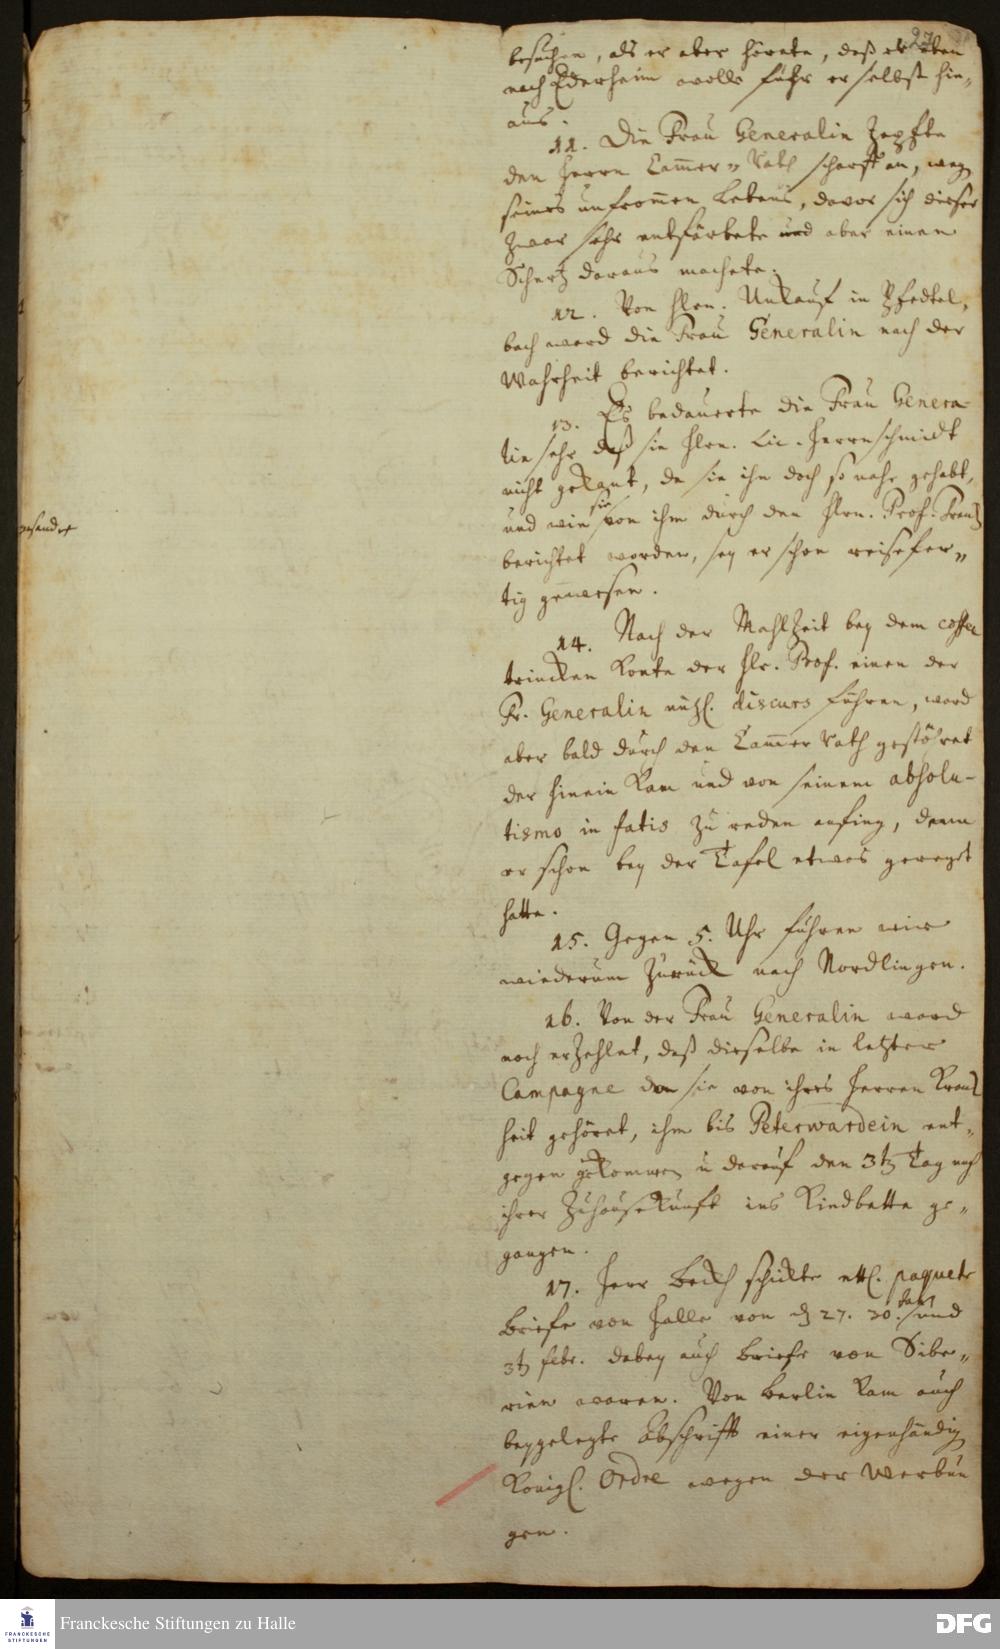 27
besuchen, als er aber hörete, daß er eben
nach Ederheim wolle fuhr er selbst hin„
aus.
11. Die Frau Generalin Zapfte
den Herrn Cam̅er„Rath scharff an, weg
seines unfrom̅en Lebens, davor sich dieser
zwar sehr entfärbete und aber einen
Schertz daraus machete.
12. Von Hrn. Unkauf in Pfedel„
bach ward die Frau Generalin nach der
Wahrheit berichtet.
13. Es bedauerte die Frau Genera-
lin sehr daß sie Hrn. Lic. Herrnschmidt
nicht gekant, da sie ihn doch so nahe gehabt,
und wie sie von ihm durch den Hrn. Prof. Franck
berichtet worden, sey er schon reisefer„
tig gewesen.
14. Nach der Mahlzeit bey dem coffee
trincken konte der Hr. Prof. einen der
Fr. Generalin nützl. discurs führen, ward
aber bald durch den Cam̅er Rath gestöhret
der hinein kam und von seinem absolu-
tismo in fatis zu reden anfing, davon
er schon bey der Tafel etwas gereget
hatte.
15. Gegen 5. Uhr fuhren wir
wiederum zurück nach Nördlingen.
16. Von der Frau Generalin ward
noch erzehlet, daß dieselbe in letzter
Campagne da sie von ihres Herren Kranck
heit gehöret, ihm bis Peterwardein ent„
gegen gekommen u darauf den 3t Tag nach
ihrer Zuhausekunft ins Kindbette ge„
gangen.
17. Herr Beckh schickte ettl. paquete
Briefe von Halle von d 27. 30. Jan. und
3t febr. dabey auch Briefe von Sibe„
rien waren. Von Berlin kam auch
beygelegte Abschrifft einer eigenhändig
Königl. Ordre wegen der Werbun
gen.
Franckesche Stiftungen zu Halle
FRANCKESCHE
STIFTUNGEN
DFG